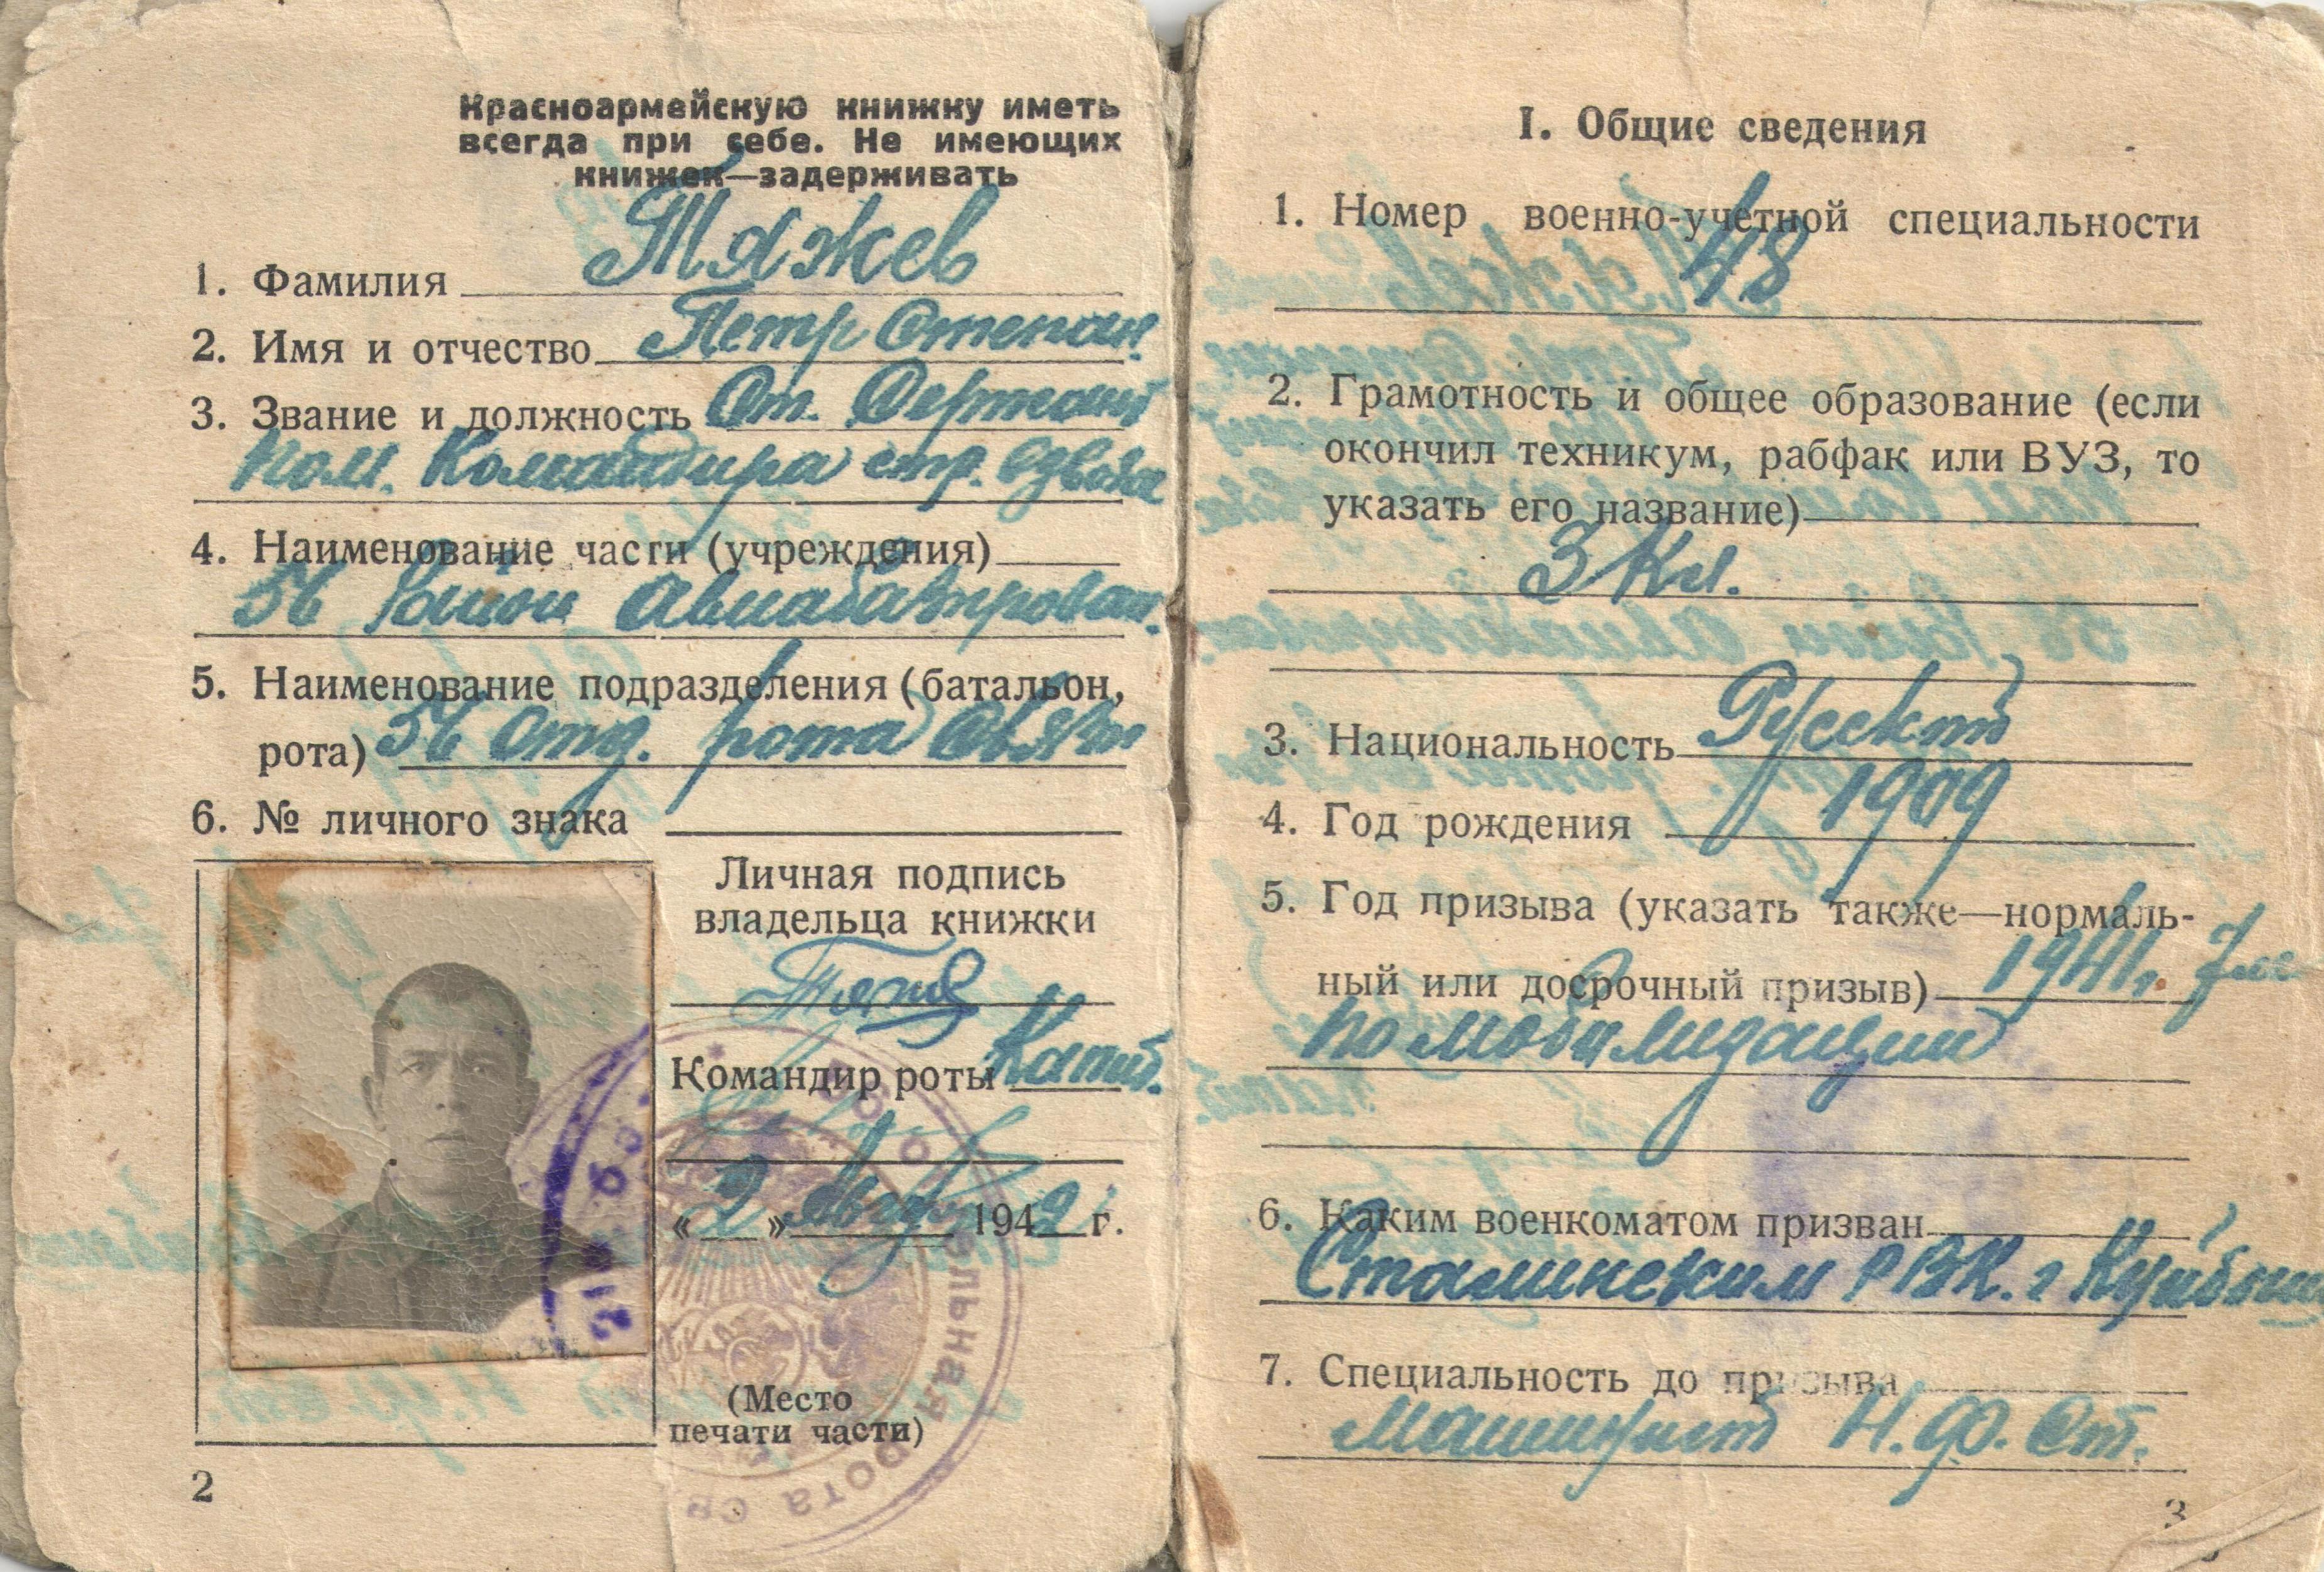 Красноармейскую книжку иметь
всегда при себе. Не имеющих
книжек—задерживать
1. Фамилия Тяжев
2. Имя и отчество Петр Степан.
3. Звание и должность Ст. Сержант
пом. Командира стр. взвода
4. Наименование части (учреждения)
56 Район авиабазирован.
5. Наименование подразделения (батальон,
рота) 56 отд. рота связи
6. № личного знака
Личная подпись
владельца книжки
Командир роты Капит.
«2» авг 1942 г.
(Место
печати части)
льная рота св
2
I. Общие сведения
1. Номер военно-учетной специальности
48
2. Грамотность и общее образование (если
окончил техникум, рабфак или ВУЗ, то
указать его название)
3 кл.
3. Национальность Русский
4. Год рождения 1909
5. Год призыва (указать также—нормаль-
ный или досрочный призыв) 1941г.
по мобилизации
6. Каким военкоматом призван
Сталинским РВК. г Куйбыш
7. Специальность до призыва
Машинист Н.Ф. Ст.
3